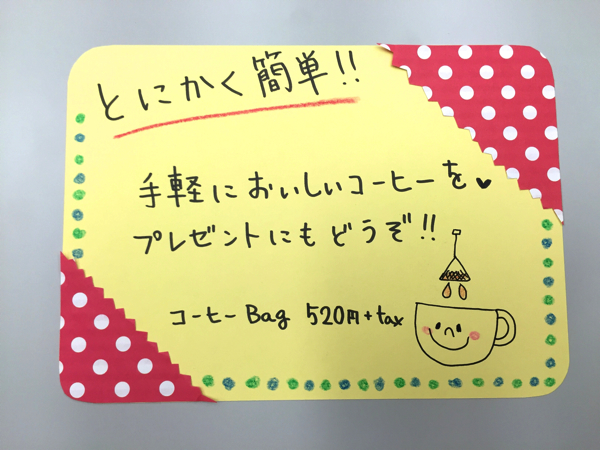 とにかく簡単!!
手軽においしいコーヒーを♥
プレゼントにもどうぞ!!
コーヒーBag 520円+tax